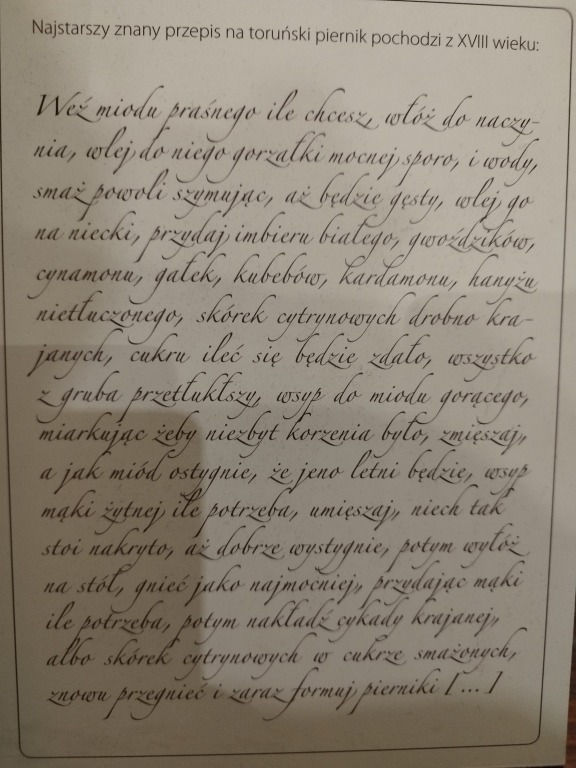 Najstarszy znany przepis na toruński piernik pochodzi z XVIII wieku:
Weź miodu praśnego ile chcesz, włóż do naczy-
nia, wlej do niego gorzałki mocnej sporo, i wody,
smaż powoli szymując, aż będzie gęsty, wlej go
na niecki, przydaj imbieru białego, gwoździków,
cynamonu, gałek, kubebów, kardamonu, hanyżu
nietłuczonego, skórek cytrynowych drobno kra-
janych, cukru ileć się będzie zdało, wszystko
z gruba przetłukłszy, wsyp do miodu gorącego,
miarkując żeby niezbyt korzenia było, zmięszaj,
a jak miód ostygnie, że jeno letni będzie, wsyp
mąki żytnej ile potrzeba, umięszaj, niech tak
stoi nakryto, aż dobrze wystygnie, potym wyłóż
na stół, gnieć jako najmocniej, przydając mąki
ile potrzeba, potym nakładź cykady krajanej,
albo skórek cytrynowych w cukrze smażonych,
znowu przegnieć i zaraz formuj pierniki [...]